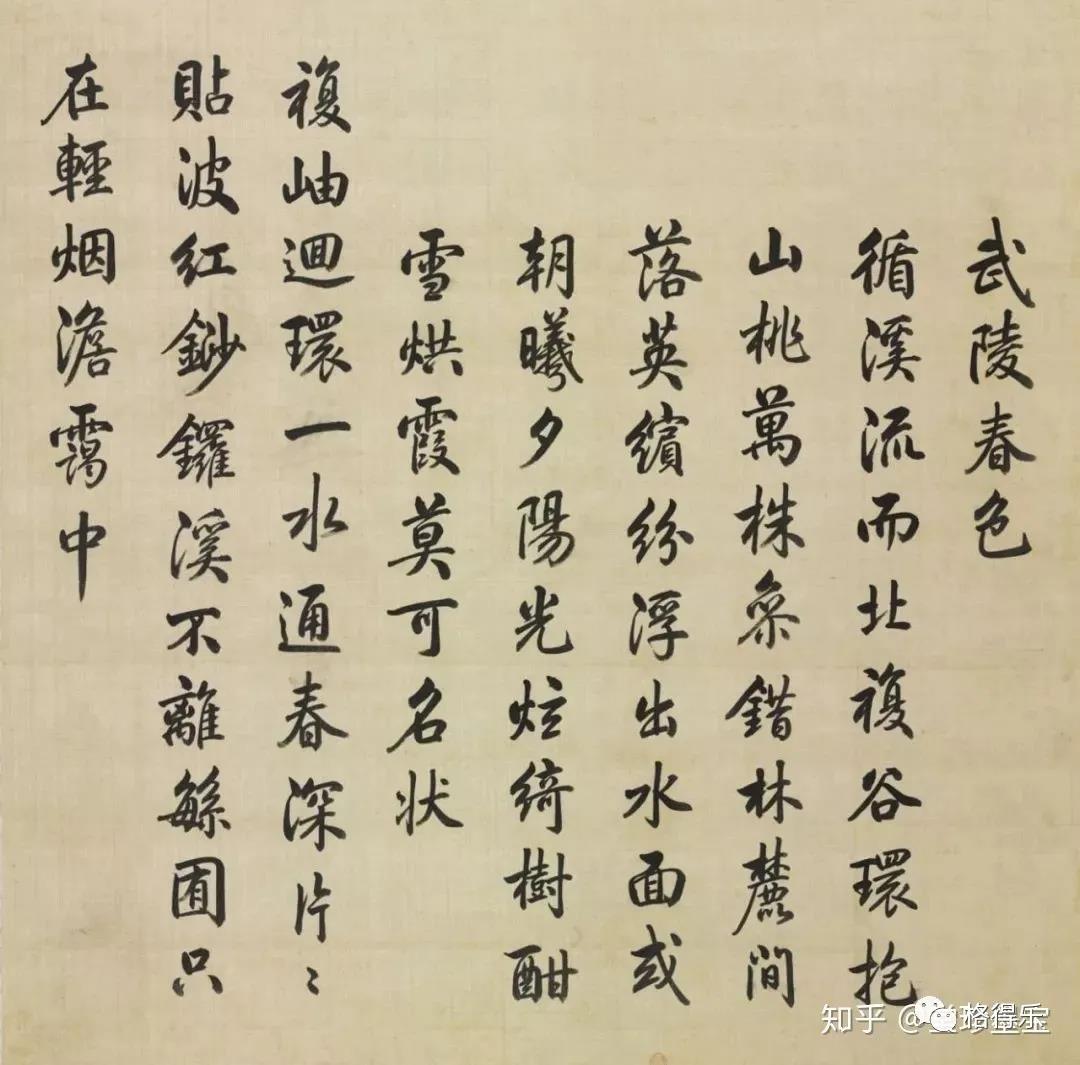 武陵春色
循溪流而北複谷環抱
山桃萬株叅錯林麓間
落英繽紛浮出水面或
朝曦夕陽光炫綺樹酣
雪烘霞莫可名状
複岫迴環一水通春深片〻
貼波紅鈔鑼溪不離緐囿只
在輕烟澹靄中
知乎 @
格得乐